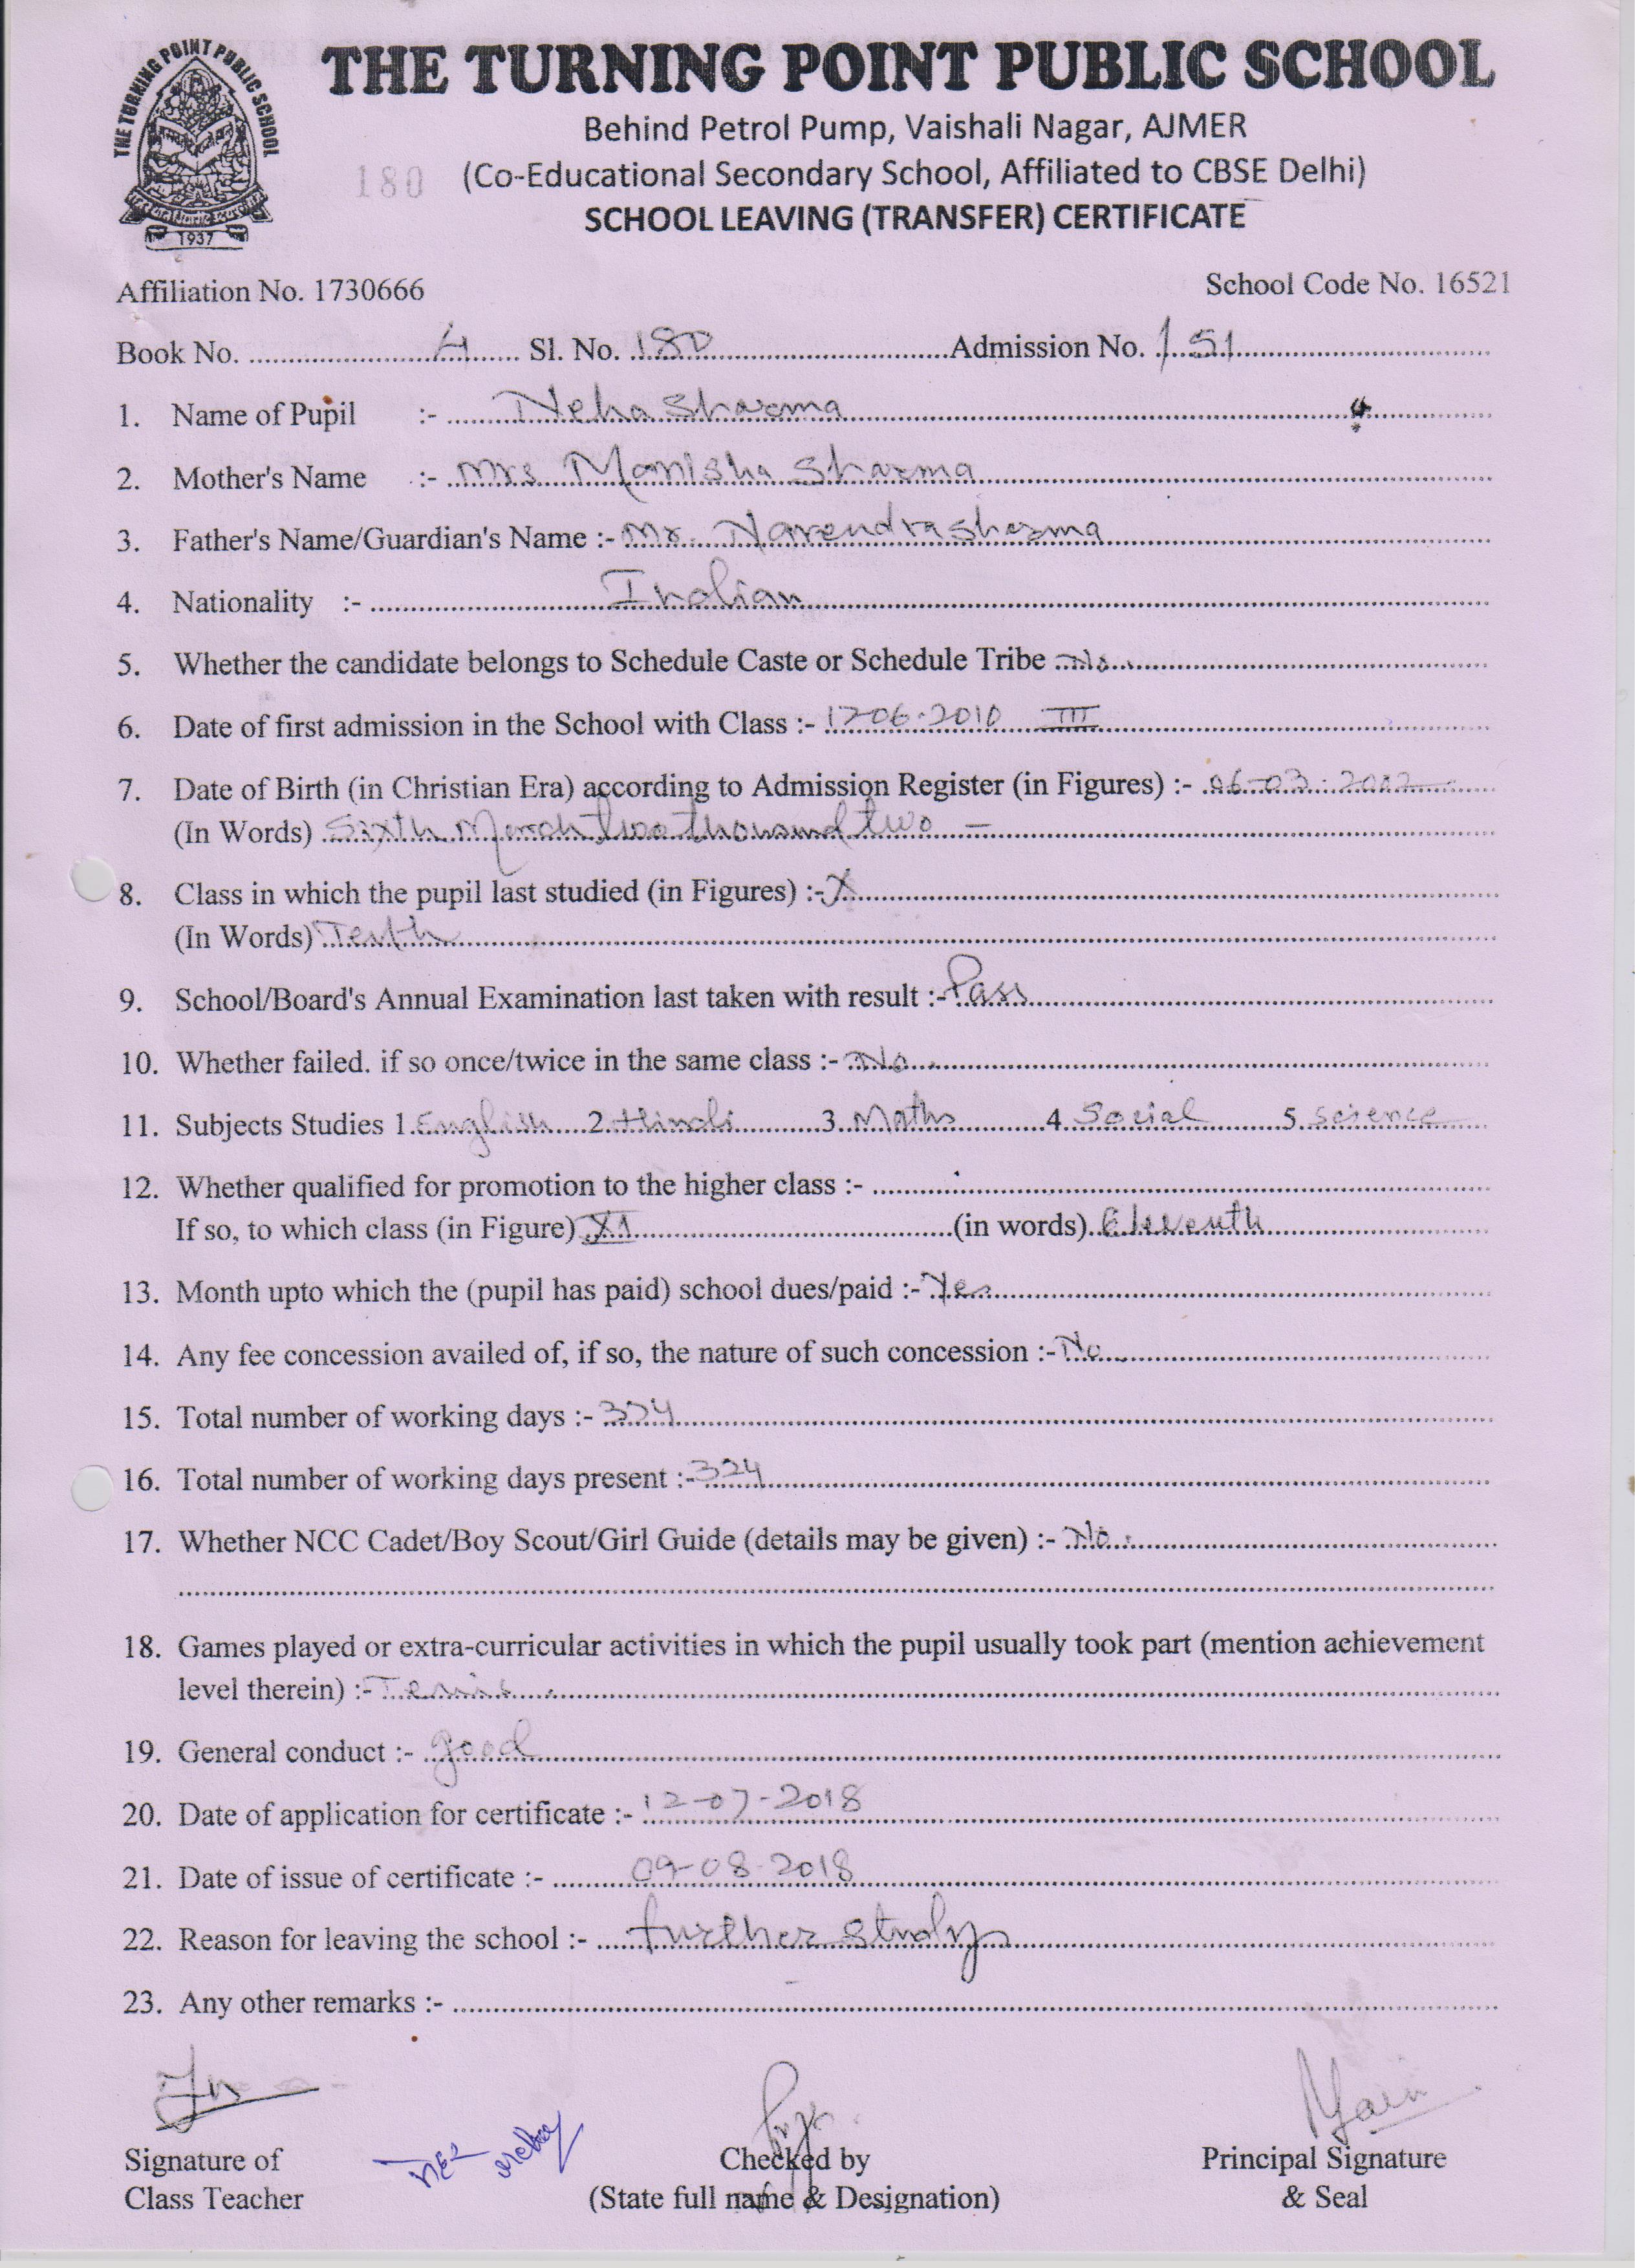 THE TURNING POINT PUBLIC SCHOOL
THE TURNING POINT PUBLIC SCHOOL
1937
Behind Petrol Pump, Vaishali Nagar, AJMER
180 (Co-Educational Secondary School, Affiliated to CBSE Delhi)
SCHOOL LEAVING (TRANSFER) CERTIFICATE
Affiliation No. 1730666 School Code No. 16521
Book No. 4 Sl. No. 180 Admission No. 151
1. Name of Pupil :- Neha Sharma
2. Mother's Name :- Mrs Manisha Sharma
3. Father's Name/Guardian's Name :- Mr. Narendra Sharma
4. Nationality :- Indian
5. Whether the candidate belongs to Schedule Caste or Schedule Tribe No
6. Date of first admission in the School with Class :- 1706-2010 III
7. Date of Birth (in Christian Era) according to Admission Register (in Figures) :- 06-03-2002
(In Words) Sixth March two thousand two
8. Class in which the pupil last studied (in Figures) :- X
(In Words) Tenth
9. School/Board's Annual Examination last taken with result :- Pass
10. Whether failed. if so once/twice in the same class :- No
11. Subjects Studies 1 English 2 Hindi 3 Maths 4 Social 5 Science
12. Whether qualified for promotion to the higher class :-
If so, to which class (in Figure) XI (in words) Eleventh
13. Month upto which the (pupil has paid) school dues/paid :- Yes
14. Any fee concession availed of, if so, the nature of such concession :- No
15. Total number of working days :-
16. Total number of working days present :- 324
17. Whether NCC Cadet/Boy Scout/Girl Guide (details may be given) :- No.
18. Games played or extra-curricular activities in which the pupil usually took part (mention achievement
level therein) :- Tenis
19. General conduct :- good
20. Date of application for certificate :- 12-07-2018
21. Date of issue of certificate :- 09-08-2018
22. Reason for leaving the school :- further study
23. Any other remarks :-
Signature of Checked by Principal Signature
Class Teacher (State full name & Designation) & Seal